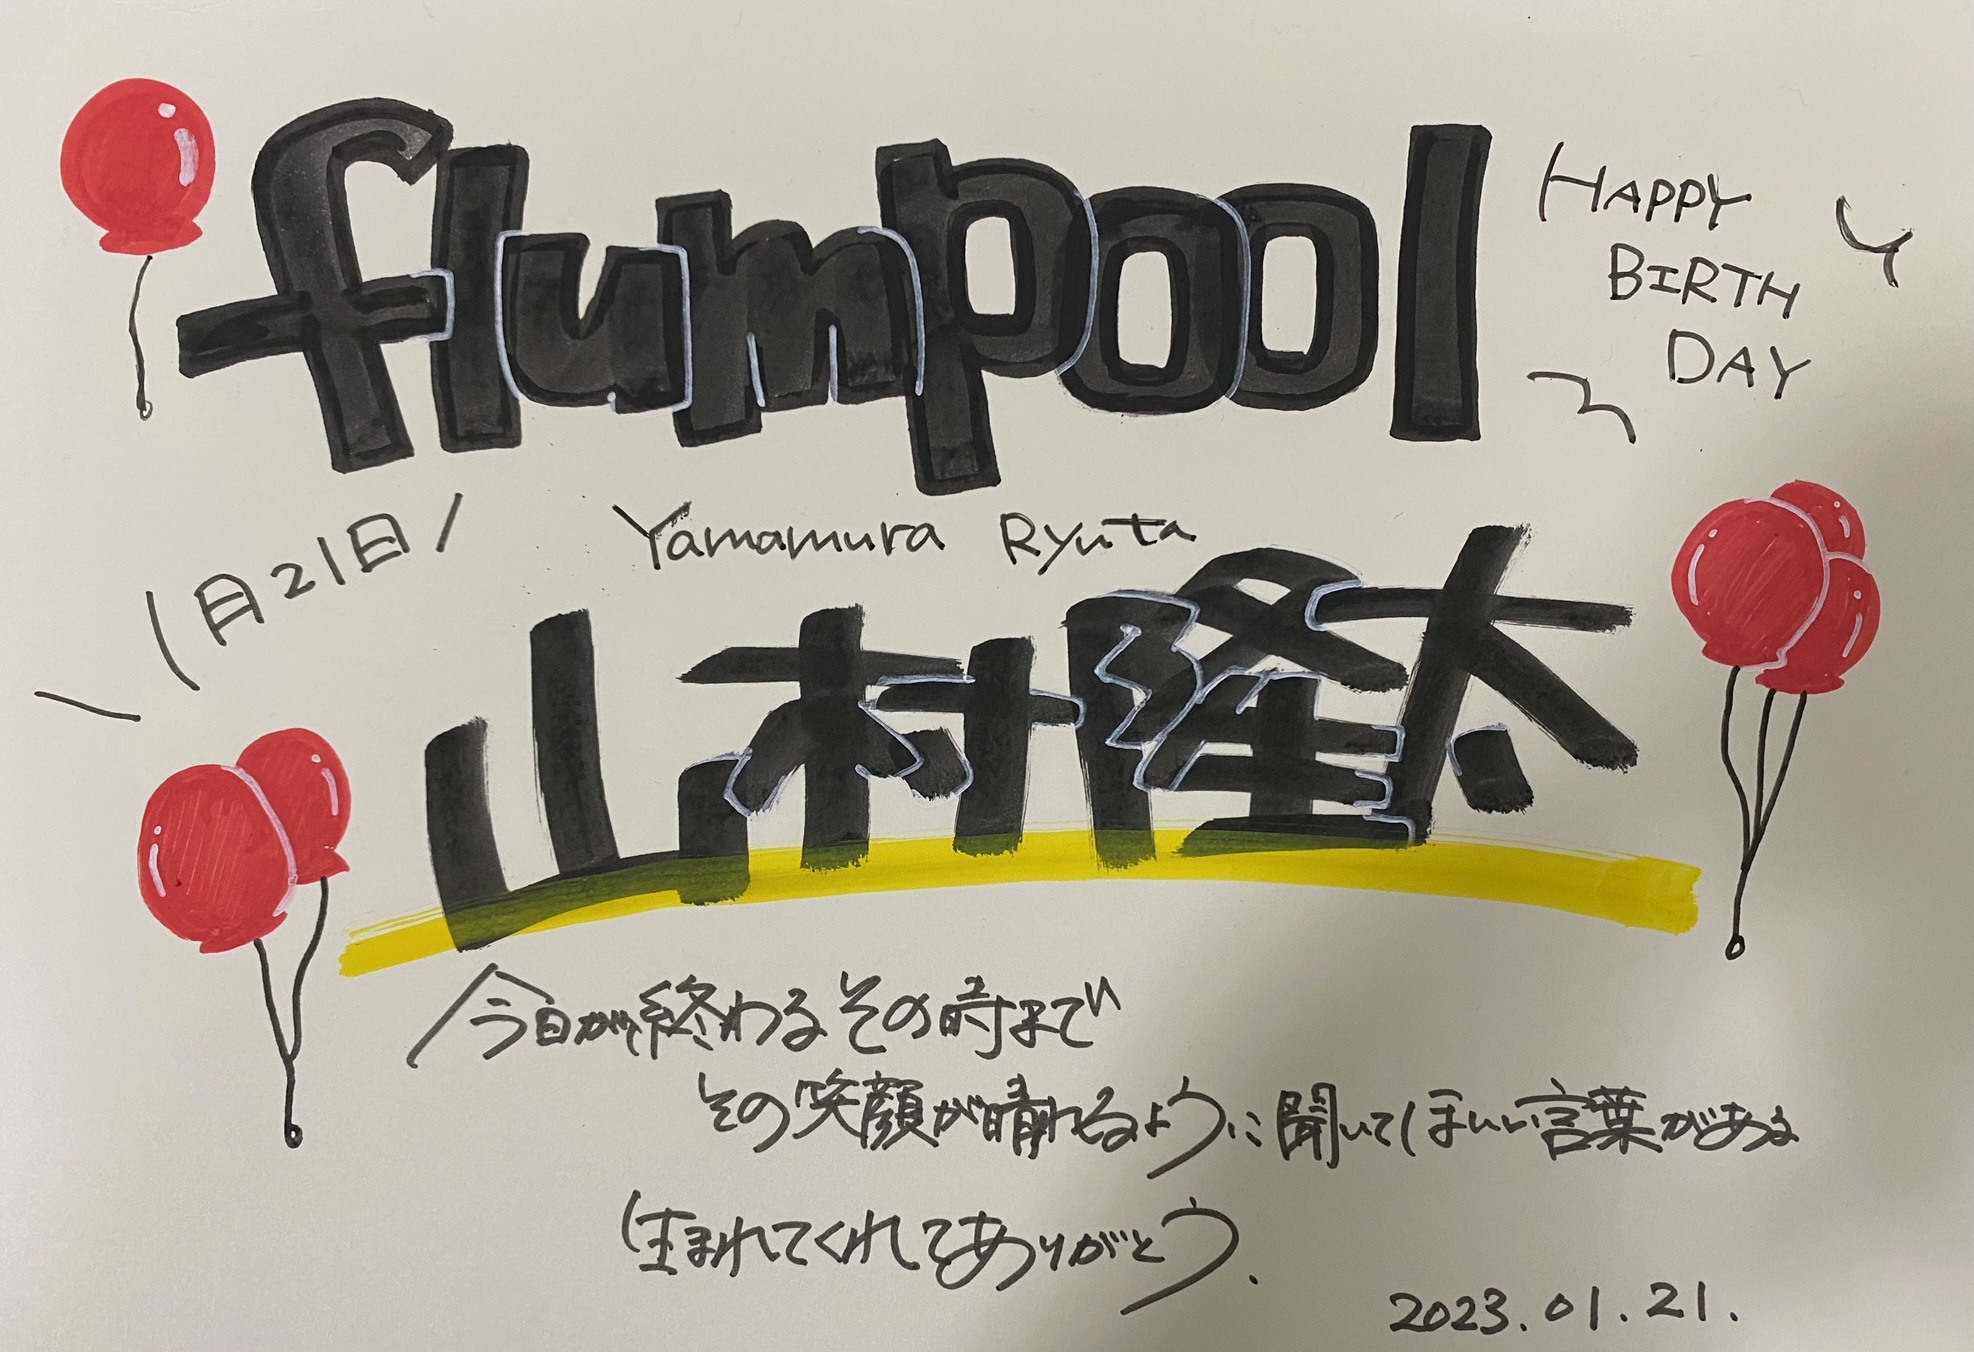 flumpool
HAPPY
BIRTH
DAY
1月21日
Yamamura Ryuta
山村隆太
今日が終わるその時まで
その笑顔が晴れるように聞いてほしい言葉がある
生まれてくれてありがとう.
2023.01.21.